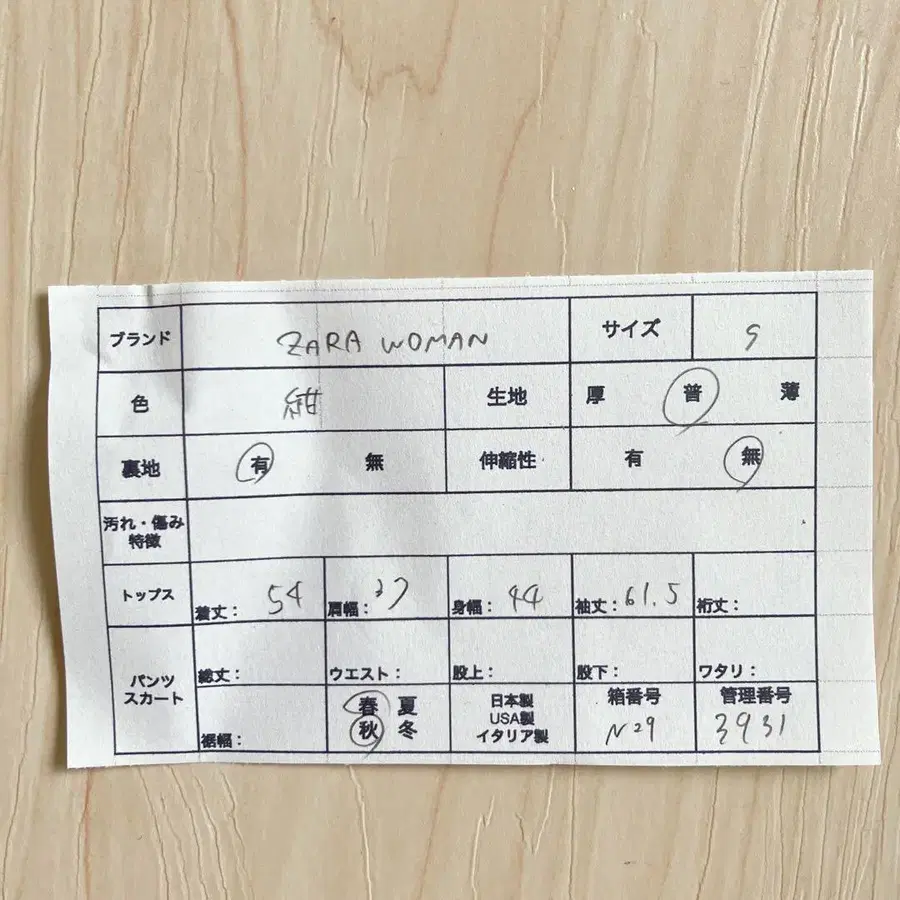 ブランド ZARA WOMAN サイズ S
色 紺 生地 厚 普 薄
裏地 有 無 伸縮性 有 無
汚れ・傷み
特徴
トップス 着丈: 54 肩幅: 37 身幅: 44 袖丈: 61.5 裄丈:
パンツ
スカート
総丈: ウエスト: 股上: 股下: ワタリ:
裾幅:
春 夏
秋 冬
日本製
USA製
イタリア製
箱番号
N29
管理番号
3931